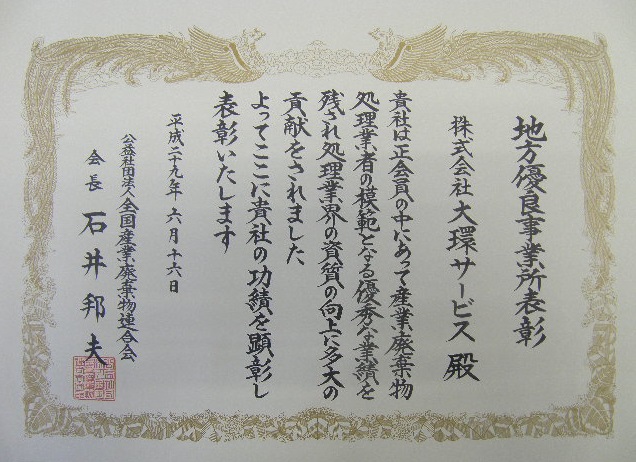 地方優良事業所表彰
株式会社大環サービス殿
貴社は正会員の中にあって産業廃棄物
処理業者の模範となる優秀な業績を
残され処理業界の資質の向上に多大の
貢献をされました
よってここに貴社の功績を顕彰し
表彰いたします
平成二十九年六月十六日
公益社団法人全国産業廃棄物連合会
会長 石井邦夫